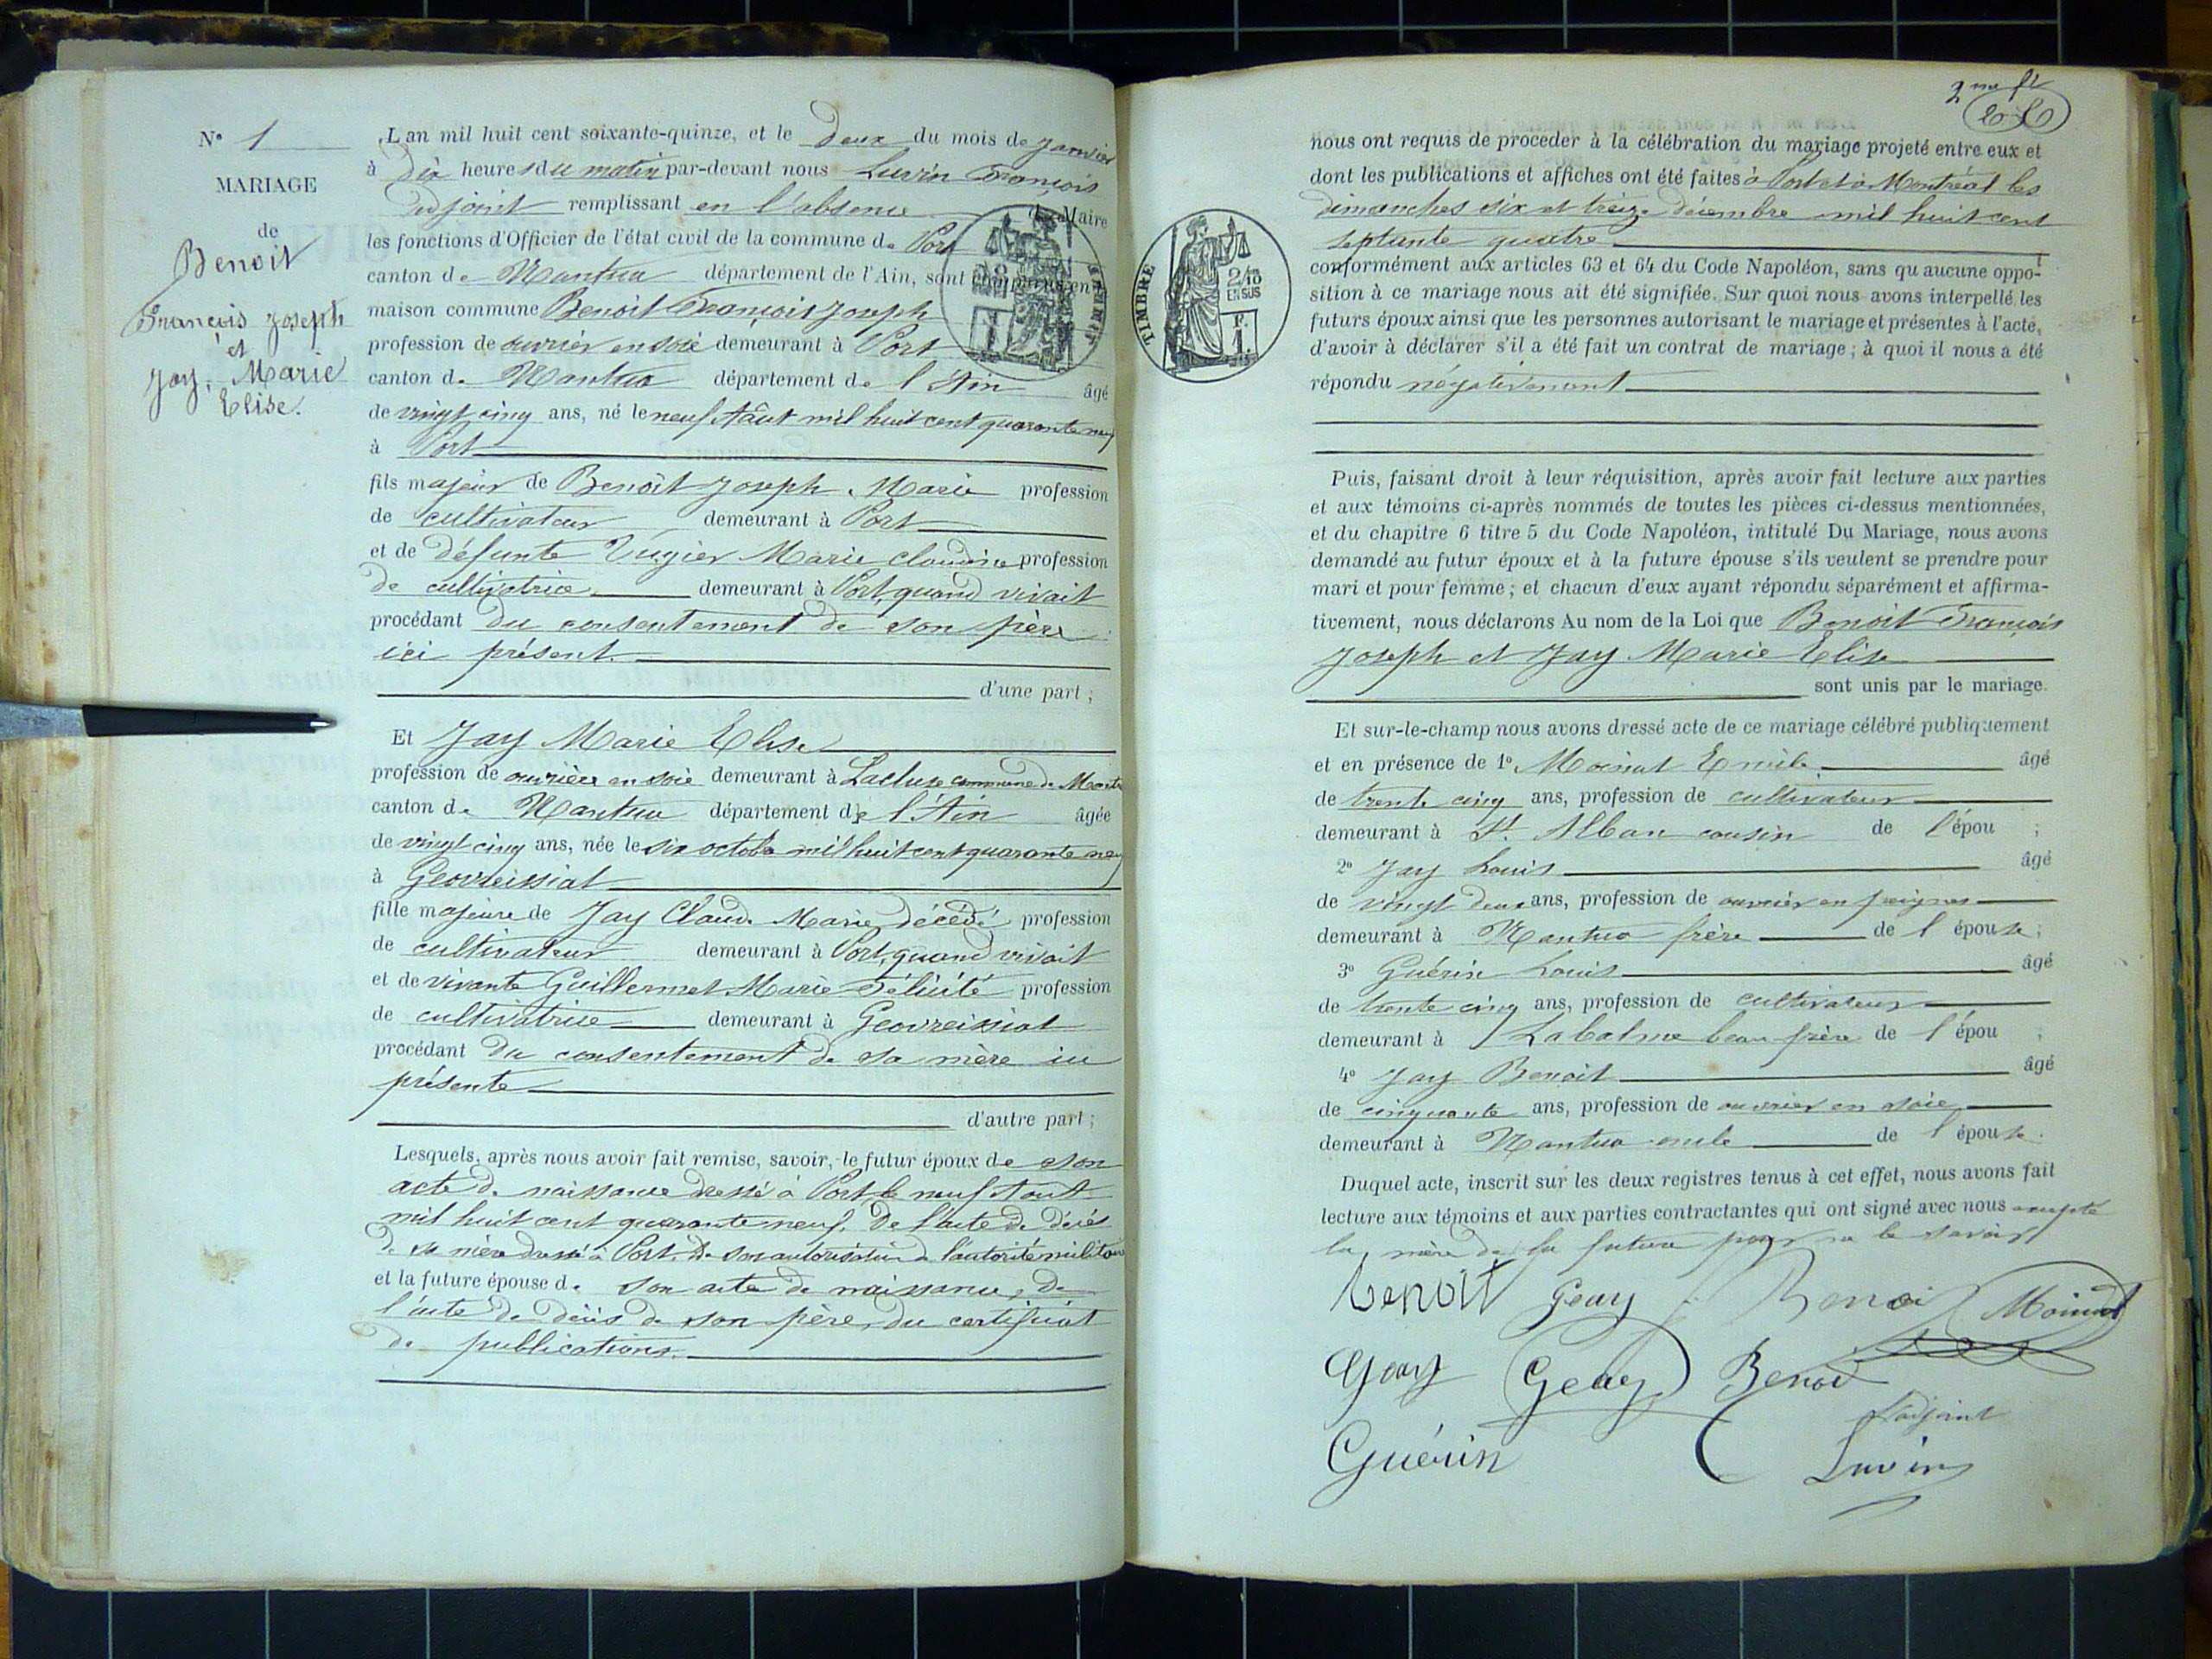 N° 1
MARIAGE
de
Benoit
François Joseph
et
Jay, Marie
Elise.
L'an mil huit cent soixante-quinze, et le Deux du mois de Janvier
à Dix heures du matin par-devant nous Luvin François
adjoint remplissant en l'absence du Maire
les fonctions d'Officier de l'état civil de la commune de Port
canton de Nantua département de l'Ain, sont comparus en
maison commune Benoit François Joseph
profession de ouvrier en soie demeurant à Port
canton de Nantua département de l'Ain âgé
de vingt cinq ans, né le neuf Août mil huit cent quarante neuf
à Port
fils majeur de Benoit Joseph Marie profession
de cultivateur demeurant à Port
et de défunte Marie Claudine profession
de cultivatrice demeurant à Port, quand vivait
procédant du consentement de son père
ici présent.
d'une part ;
Et Jay Marie Elise
profession de ouvrière en soie demeurant à Lacluse commune de
canton de Nantua département de l'Ain âgée
de vingt cinq ans, née le six octobre mil huit cent quarante neuf
à Geovreissiat
fille majeure de Jay Claude Marie décédé profession
de cultivateur demeurant à Port, quand vivait
et de vivante Guillermet Marie Félicité profession
de cultivatrice demeurant à Geovreissiat
procédant du consentement de sa mère ici
présente
d'autre part ;
Lesquels, après nous avoir fait remise, savoir, le futur époux de son
acte de naissance dressé à Port, le neuf Aout
mil huit cent quarante neuf. De l'acte de décès
de sa mère dressé à Port. De son autorisation de l'autorité militaire
et la future épouse de son acte de naissance, De
l'acte de décès de son père, du certificat
de publications.
2me ft
nous ont requis de proceder à la célébration du mariage projeté entre eux et
dont les publications et affiches ont été faites à Port et à Montréal les
dimanches six et treize décembre mil huit cent
septante quatre
conformément aux articles 63 et 64 du Code Napoléon, sans qu'aucune oppo-
sition à ce mariage nous ait été signifiée. Sur quoi nous avons interpellé les
futurs époux ainsi que les personnes autorisant le mariage et présentes à l'acte,
d'avoir à déclarer s'il a été fait un contrat de mariage ; à quoi il nous a été
répondu négativement
TIMBRE
2/10
EN SUS
F.
1.
Puis, faisant droit à leur réquisition, après avoir fait lecture aux parties
et aux témoins ci-après nommés de toutes les pièces ci-dessus mentionnées,
et du chapitre 6 titre 5 du Code Napoléon, intitulé Du Mariage, nous avons
demandé au futur époux et à la future épouse s'ils veulent se prendre pour
mari et pour femme ; et chacun d'eux ayant répondu séparément et affirma-
tivement, nous déclarons Au nom de la Loi que Benoit François
Joseph et Jay Marie Elise
sont unis par le mariage.
Et sur-le-champ nous avons dressé acte de ce mariage célébré publiquement
et en présence de 1° Moinat Emile âgé
de trente cinq ans, profession de cultivateur
demeurant à St. Alban cousin de l'épou ;
2° Jay Louis âgé
de vingt deux ans, profession de ouvrier en peignes
demeurant à Nantua frère de l'épouse ;
3° Guérin Louis âgé
de trente cinq ans, profession de cultivateur
demeurant à Labalme beau frère de l'épou ;
4° Jay Benoit âgé
de cinquante ans, profession de ouvrier en soie
demeurant à Nantua oncle de l'épouse.
Duquel acte, inscrit sur les deux registres tenus à cet effet, nous avons fait
lecture aux témoins et aux parties contractantes qui ont signé avec nous excepté
la mère de la future pour ne le savoir
Benoit Geay Benoi Moinat
Geay Geay Benoit
L'adjoint
Guérin Luvin